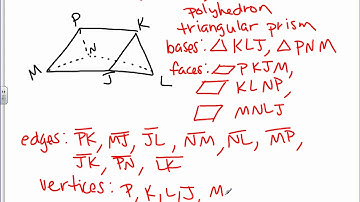 polyhedron
triangular prism
bases: △ KLJ, △ PNM
faces: ▱ PKJM,
▱ KLNP,
▱ MNLJ
P K
N
M J L
edges: P̅K̅, M̅J̅, J̅L̅, N̅M̅, N̅L̅, M̅P̅,
J̅K̅, P̅N̅, L̅K̅
vertices: P, K, L, J, M